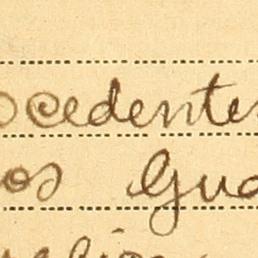 ocedentes
os Gua